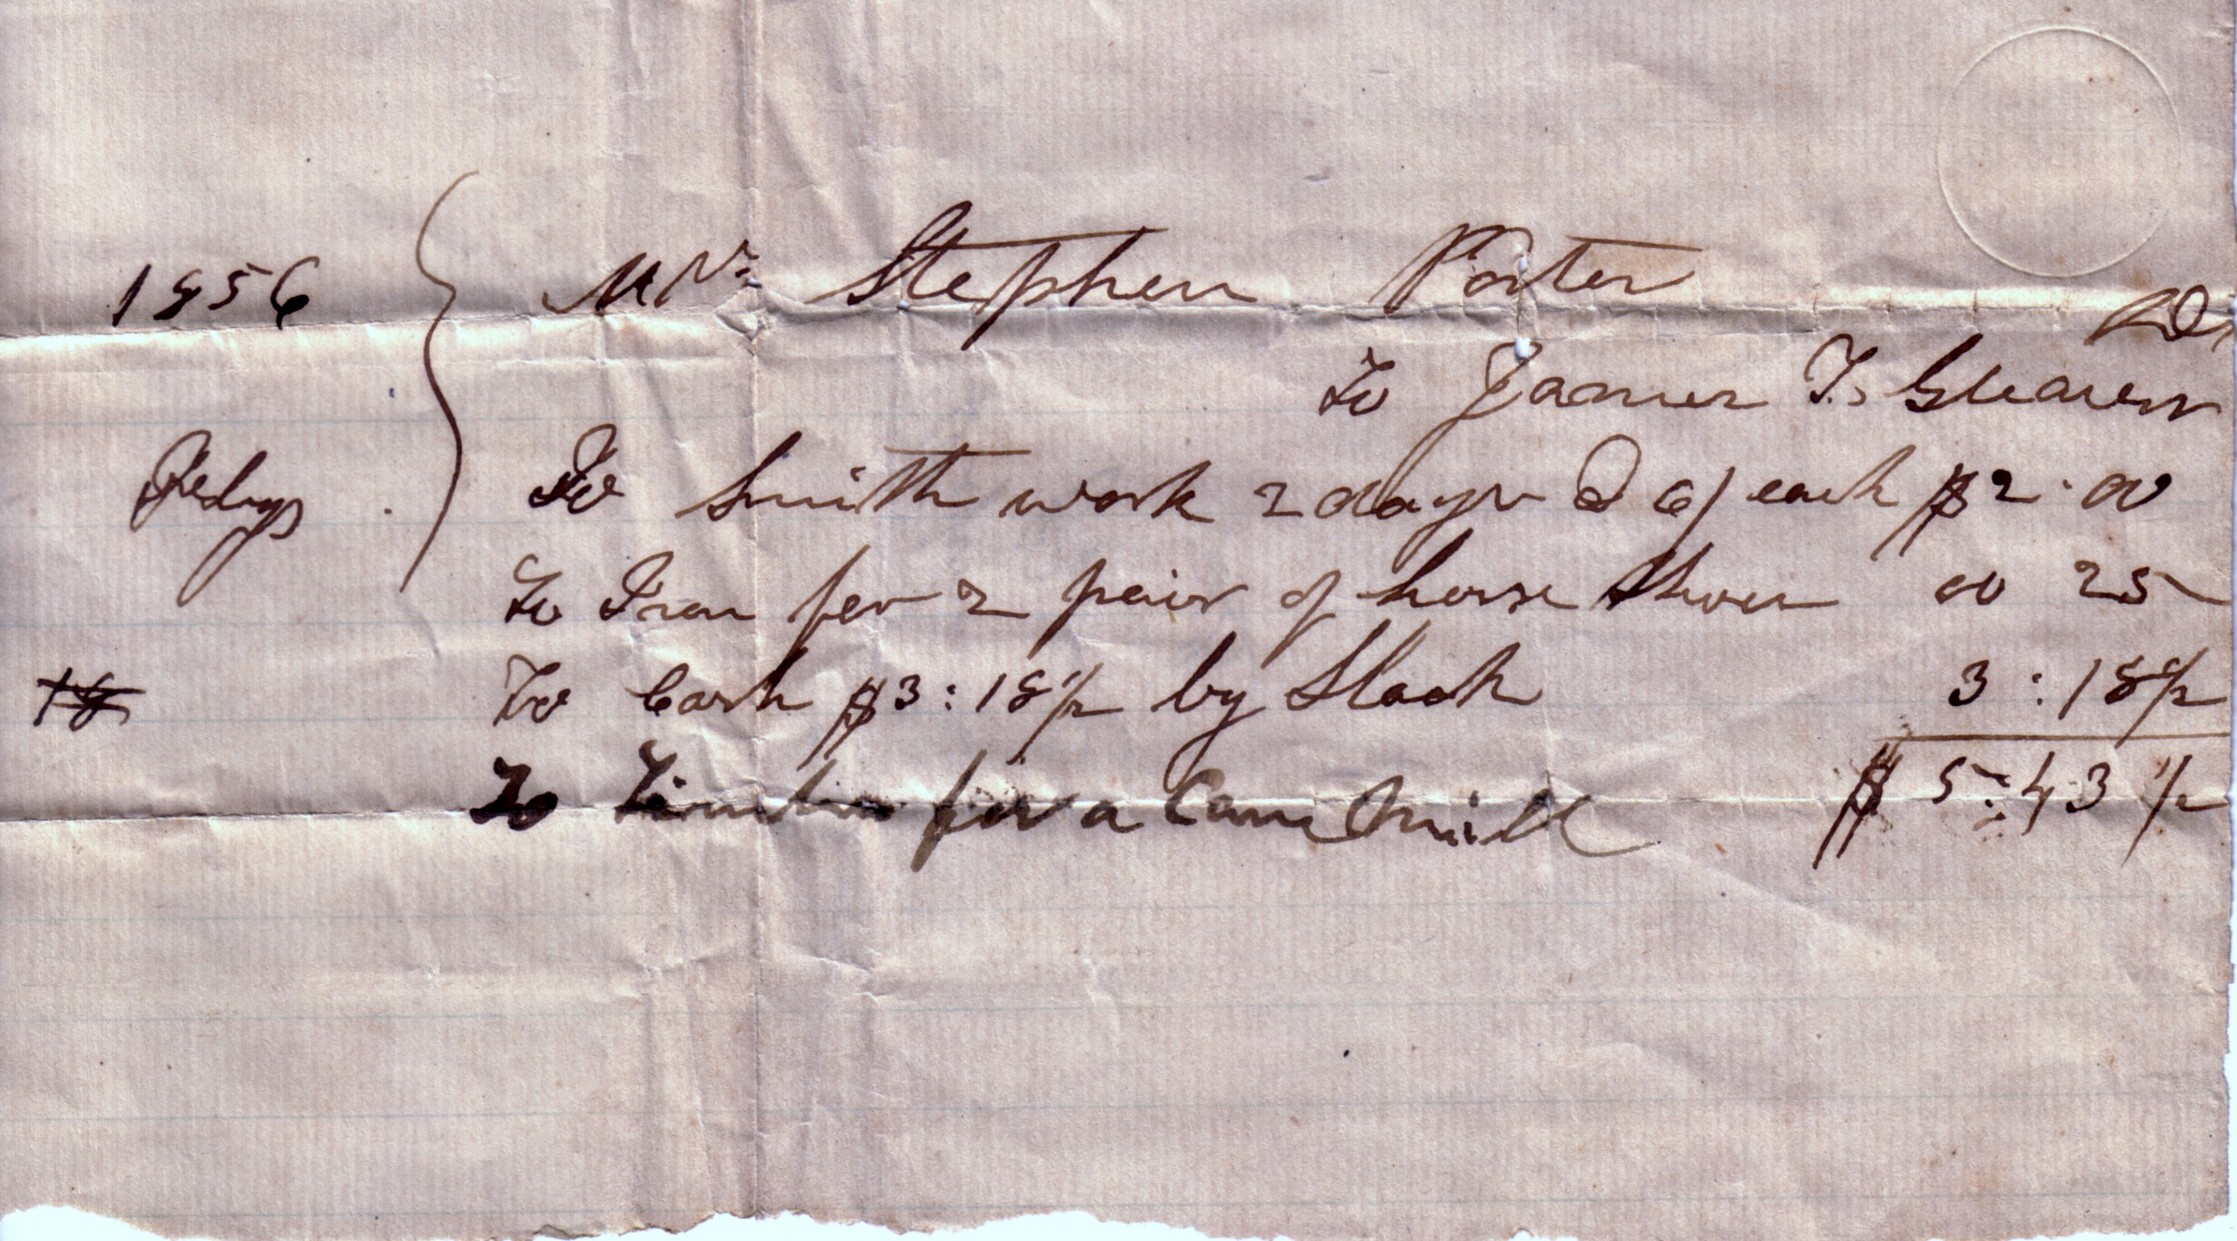 1856 Mr. Stephen Porter
Dr
To James T.
To Smith work 2 days @ 6/ each $2.00
To Iron for 2 pair of horse Shoes 00 25
To Cash $3:18 1/2 by Slack 3:18 1/2
18
$5:43 1/2
To Timber for a Cane Mill